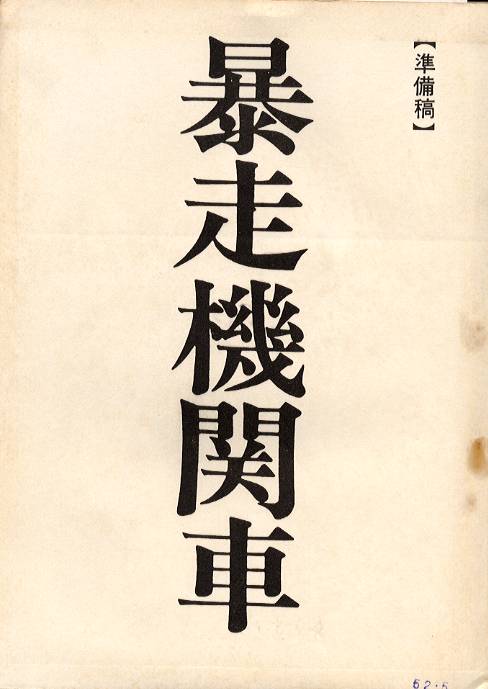 【準備稿】
暴走機関車